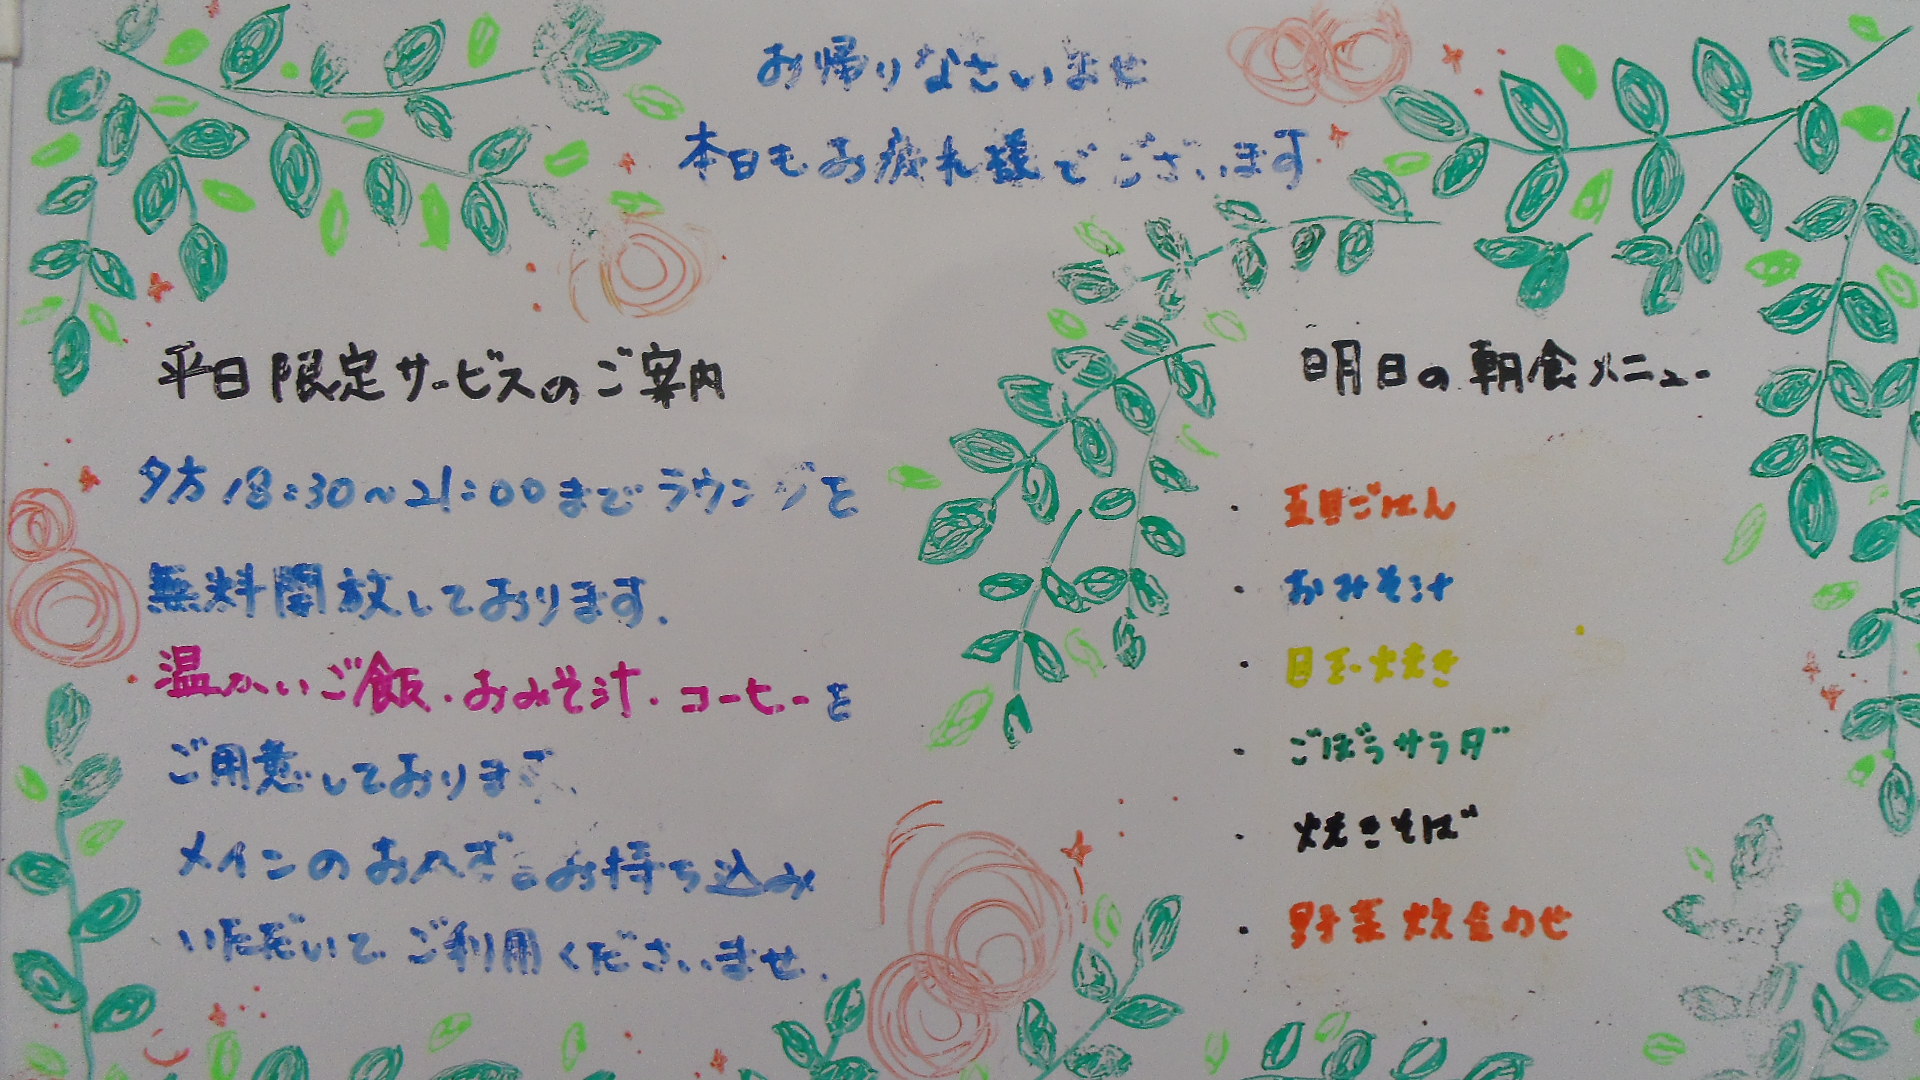 お帰りなさいませ
本日もお疲れ様でございます
平日限定サービスのご案内
夕方18:30~21:00までラウンジを
無料開放しております.
温かいご飯・おみそ汁・コーヒーを
ご用意しております、
メインのおかずをお持ち込み
いただいてご利用くださいませ.
明日の朝食メニュー
・五目ごはん
・おみそ汁
・目玉焼き
・ごぼうサラダ
・焼きそば
・野菜炊合わせ